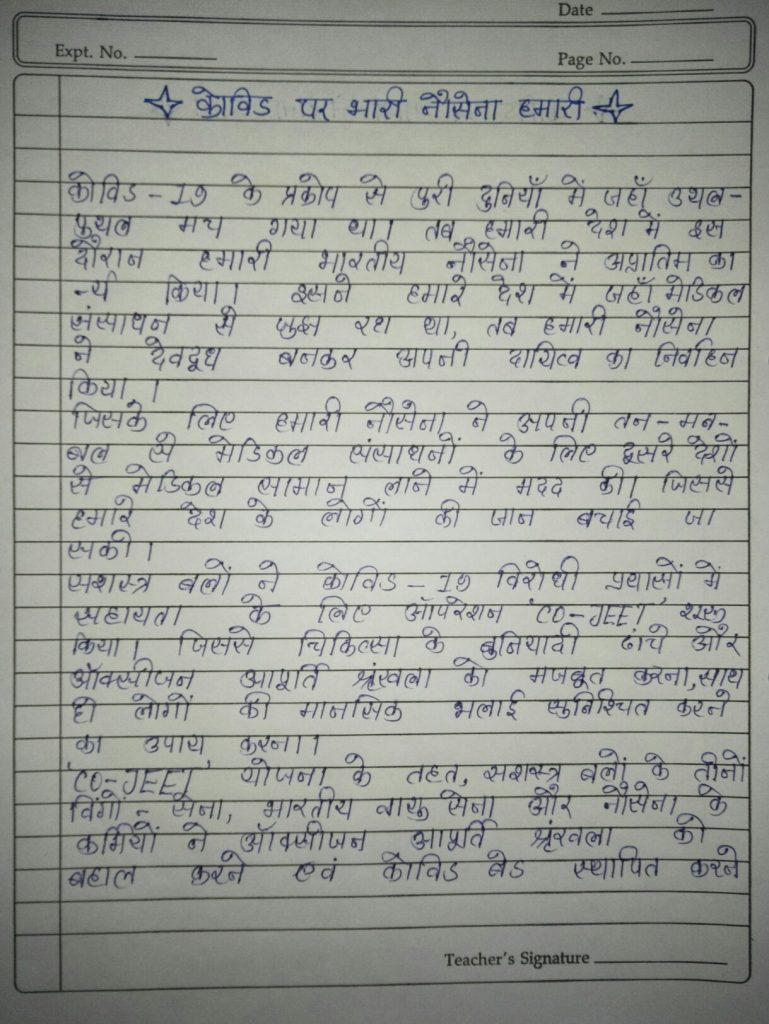 Date
Expt. No.
Page No.
कोविड पर भारी नौसेना हमारी
कोविड - 19 के प्रकोप से पुरी दुनियाँ में जहाँ उथल-
पुथल मच गया था। तब हमारी देश में इस
दौरान हमारी भारतीय नौसेना ने अप्रतिम का
-र्य किया। इसने हमारे देश में जहाँ मेडिकल
संसाधन से जुझ रहा था, तब हमारी नौसेना
ने देवदूध बनकर अपनी दायित्व का निर्वाहन
किया।
जिसके लिए हमारी नौसेना ने अपनी तन-मन-
बल से मेडिकल संसाधनों के लिए दूसरे देशों
से मेडिकल सामान लाने में मदद की। जिससे
हमारे देश के लोगों की जान बचाई जा
सकी।
सशस्त्र बलों ने कोविड - 19 विरोधी प्रयासों में
सहायता के लिए ऑपरेशन 'CO-JEET' शुरू
किया। जिससे चिकित्सा के बुनियादी ढांचे और
ऑक्सीजन आपूर्ति श्रृंखला को मजबूत करना, साथ
ही लोगों की मानसिक भलाई सुनिश्चित करने
का उपाय करना।
'CO-JEET' योजना के तहत, सशस्त्र बलों के तीनों
विंगों - सेना, भारतीय वायु सेना और नौसेना के
कर्मियों ने ऑक्सीजन आपूर्ति श्रृंखला को
बहाल करने एवं कोविड बेड स्थापित करने
Teacher's Signature